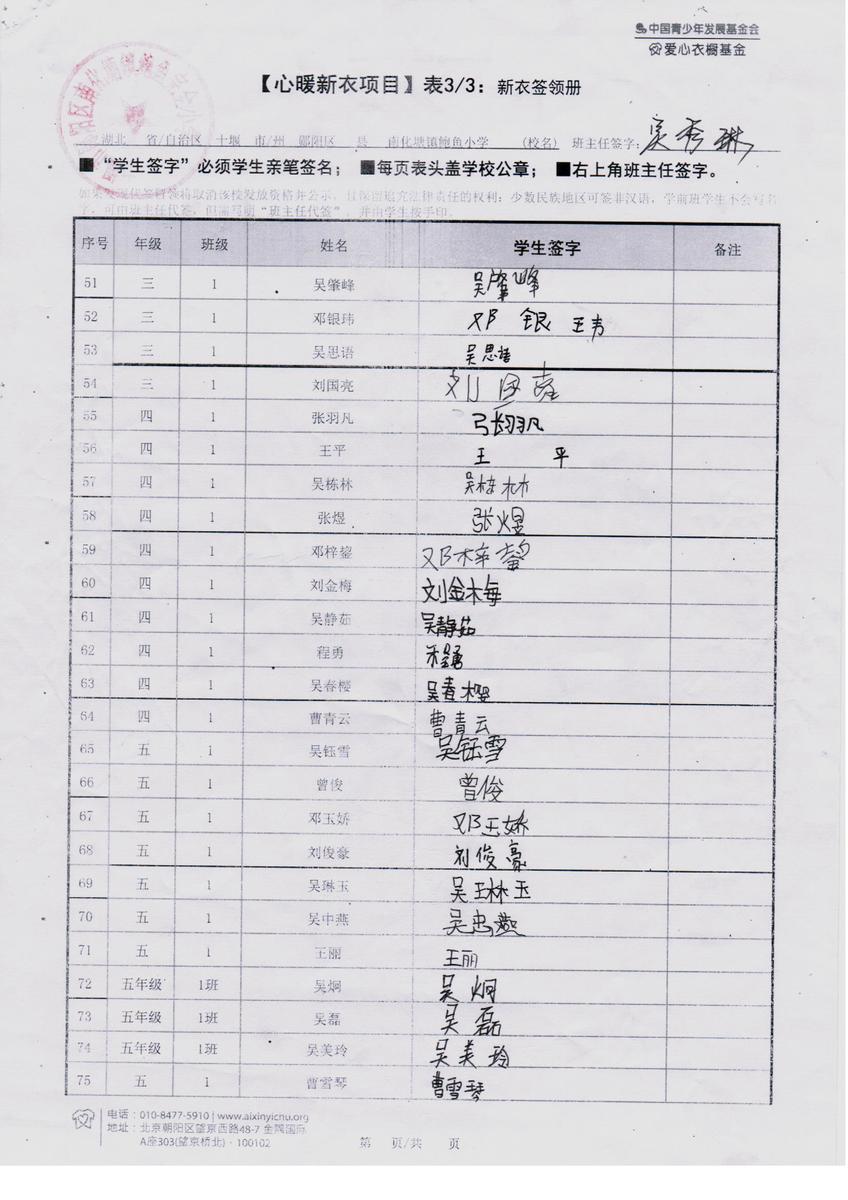 中国青少年发展基金会
爱心衣橱基金
【心暖新衣项目】表3/3：新衣签领册
湖北 省/自治区 十堰 市/州 郧阳区 县 南化塘镇鲍鱼小学 (校名) 班主任签字：吴秀琳
■“学生签字”必须学生亲笔签名； ■每页表头盖学校公章； ■右上角班主任签字。
如果发现代签冒领将取消该校发放资格并公示，且保留追究法律责任的权利；少数民族地区可签非汉语，学前班学生不会写名
字，可由班主任代签，但需写明“班主任代签”，并由学生按手印。
序号 年级 班级 姓名 学生签字 备注
51 三 1 吴肇峰 吴肇峰
52 三 1 邓银玮 邓银玮
53 三 1 吴思语 吴思语
54 三 1 刘国亮 刘国亮
55 四 1 张羽凡 张羽凡
56 四 1 王平 王平
57 四 1 吴栋林 吴栋林
58 四 1 张煜 张煜
59 四 1 邓梓鋆 邓梓
60 四 1 刘金梅 刘金梅
61 四 1 吴静茹 吴静茹
62 四 1 程勇 程勇
63 四 1 吴春樱 吴春樱
64 四 1 曹青云 曹青云
65 五 1 吴钰雪 吴钰雪
66 五 1 曾俊 曾俊
67 五 1 邓玉娇 邓玉娇
68 五 1 刘俊豪 刘俊豪
69 五 1 吴琳玉 吴琳玉
70 五 1 吴中燕 吴忠燕
71 五 1 王丽 王丽
72 五年级 1班 吴炯 吴炯
73 五年级 1班 吴磊 吴磊
74 五年级 1班 吴美玲 吴美玲
75 五 1 曹雪琴 曹雪琴
电话：010-8477-5910 | www.aixinyichu.org
地址：北京朝阳区望京西路48-7 金隅国际
A座303(望京桥北)·100102
第 页/共 页